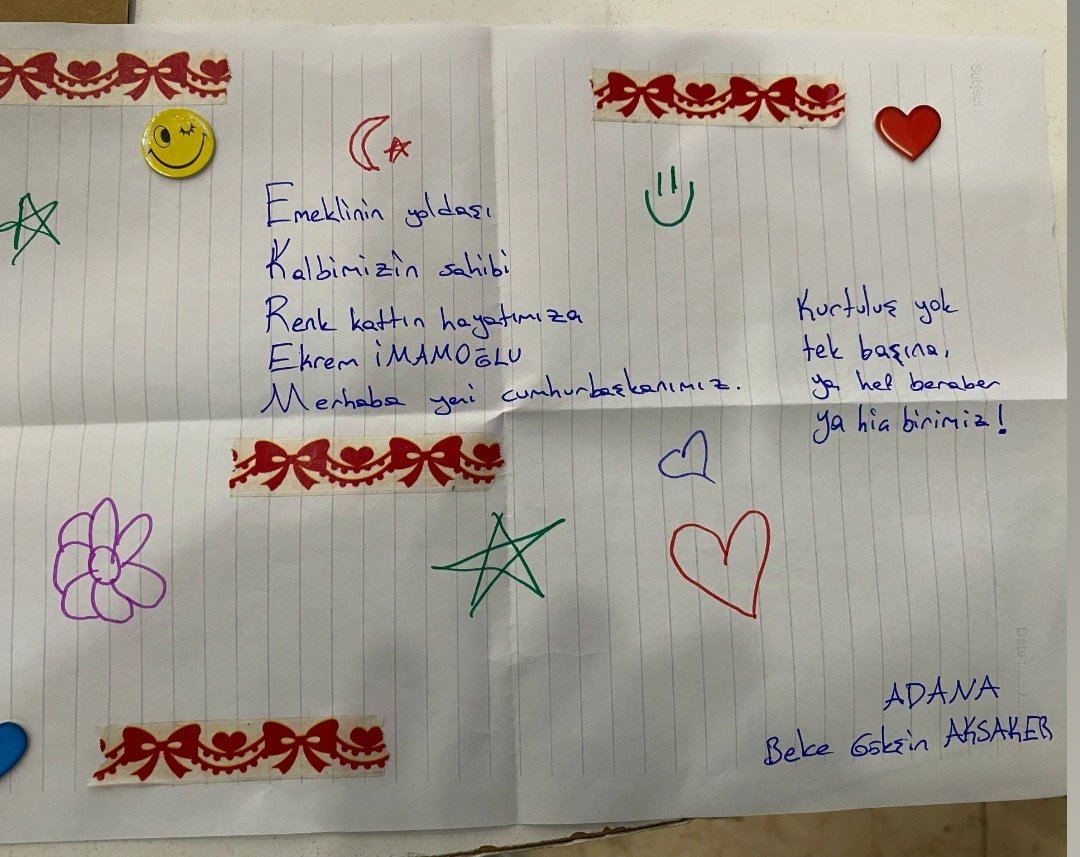 Emeklinin yoldaşı
Kalbimizin sahibi
Renk kattın hayatımıza
Ekrem İMAMOĞLU
Merhaba yeni cumhurbaşkanımız.
Kurtuluş yok
tek başına,
ya hep beraber
ya hiç birimiz!
ADANA
Beke Gökşin AKSAKER
Subject
Date